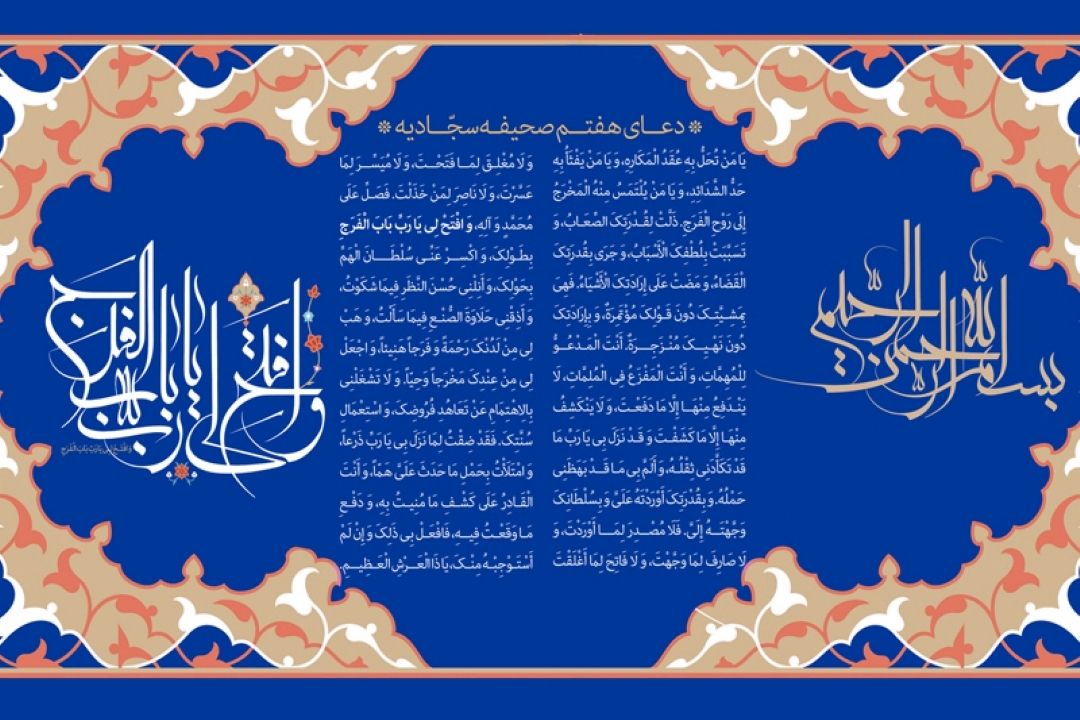 دعـای هفتـم صحیفـه سجّـادیه
بسم الله الرحمن الرحیم
یَا مَنْ تُحَلُّ بِهِ عُقَدُ الْمَكَارِهِ، وَ یَا مَنْ یَفْثَأُ بِهِ
حَدُّ الشَّدَائِدِ، وَ یَا مَنْ یُلْتَمَسُ مِنْهُ الْمَخْرَجُ
إِلَى رَوْحِ الْفَرَجِ. ذَلَّتْ لِقُدْرَتِکَ الصِّعَابُ، وَ
تَسَبَّبَتْ بِلُطْفِکَ الْأَسْبَابُ، وَ جَرَى بِقُدْرَتِکَ
الْقَضَاءُ، وَ مَضَتْ عَلَى إِرَادَتِکَ الْأَشْیَاءُ. فَهِیَ
بِمَشِیَّتِکَ دُونَ قَوْلِکَ مُؤْتَمِرَةٌ، وَ بِإِرَادَتِکَ
دُونَ نَهْیِکَ مُنْزَجِرَةٌ. أَنْتَ الْمَدْعُوُّ
لِلْمُهِمَّاتِ، وَ أَنْتَ الْمَفْزَعُ فِی الْمُلِمَّاتِ، لَا
یَنْدَفِعُ مِنْهَا إِلَّا مَا دَفَعْتَ، وَ لَا یَنْکَشِفُ
مِنْهَا إِلَّا مَا کَشَفْتَ وَ قَدْ نَزَلَ بِی یَا رَبِّ مَا
قَدْ تَکَأَّدَنِی ثِقْلُهُ، وَ أَلَمَّ بِی مَا قَدْ بَهَظَنِی
حَمْلُهُ. وَ بِقُدْرَتِکَ أَوْرَدْتَهُ عَلَیَّ وَ بِسُلْطَانِکَ
وَجَّهْتَهُ إِلَیَّ. فَلَا مُصْدِرَ لِمَا أَوْرَدْتَ، وَ
لَا صَارِفَ لِمَا وَجَّهْتَ، وَ لَا فَاتِحَ لِمَا أَغْلَقْتَ
وَ لَا مُغْلِقَ لِمَا فَتَحْتَ، وَ لَا مُیَسِّرَ لِمَا
عَسَّرْتَ، وَ لَا نَاصِرَ لِمَنْ خَذَلْتَ. فَصَلِّ عَلَى
مُحَمَّدٍ وَ آلِهِ، وَ افْتَحْ لِی یَا رَبِّ بَابَ الْفَرَجِ
بِطَوْلِکَ، وَ اکْسِرْ عَنِّی سُلْطَانَ الْهَمِّ
بِحَوْلِکَ، وَ أَنِلْنِی حُسْنَ النَّظَرِ فِیمَا شَکَوْتُ،
وَ أَذِقْنِی حَلَاوَةَ الصُّنْعِ فِیمَا سَأَلْتُ، وَ هَبْ
لِی مِنْ لَدُنْکَ رَحْمَةً وَ فَرَجاً هَنِیئاً، وَ اجْعَلْ
لِی مِنْ عِنْدِکَ مَخْرَجاً وَحِیّاً. وَ لَا تَشْغَلْنِی
بِالِاهْتِمَامِ عَنْ تَعَاهُدِ فُرُوضِکَ، وَ اسْتِعْمَالِ
سُنَّتِکَ. فَقَدْ ضِقْتُ لِمَا نَزَلَ بِی یَا رَبِّ ذَرْعاً،
وَ امْتَلَأْتُ بِحَمْلِ مَا حَدَثَ عَلَیَّ هَمّاً، وَ أَنْتَ
الْقَادِرُ عَلَى کَشْفِ مَا مُنِیتُ بِهِ، وَ دَفْعِ
مَا وَقَعْتُ فِیهِ، فَافْعَلْ بِی ذَلِکَ وَ إِنْ لَمْ
أَسْتَوْجِبْهُ مِنْکَ، یَا ذَا الْعَرْشِ الْعَظِیمِ.
و افتح لی یا رب باب الفرج
وَ افْتَحْ لِی یَا رَبِّ بَابَ الْفَرَجِ